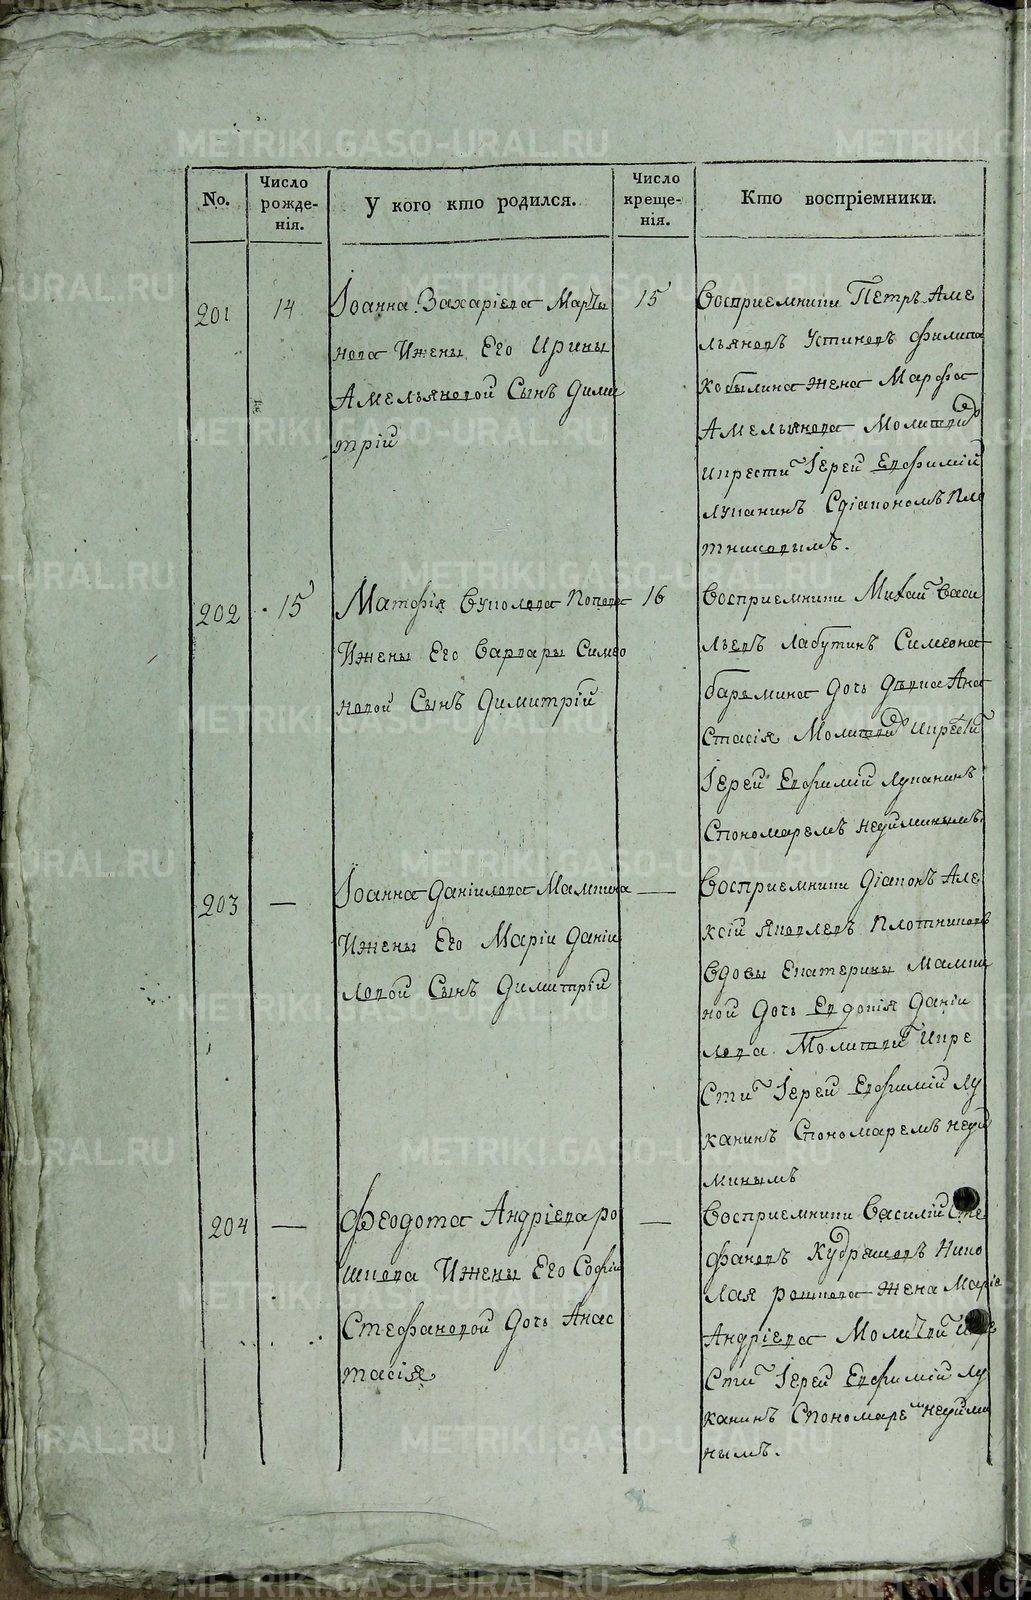 No.
Число рожде-нія.
У кого кто родился.
Число креще-нія.
Кто воспріемники.
201
14
Іоанна Захаріева Марты
нова Ижены Его Ирины
Амельяновой Сынъ Дими
трій
15
Восприемники Петръ Аме
льяновъ Устиновъ Филипа
Кобылина жена Марфа
Амельянова Молитвой
икрести Іерей Евфимій
Луканинъ Сдіакономъ Пло
тниковымъ.
202
15
Матфія Вуколова Попова
Ижены Его Варвары Симео
новой Сынъ Димитрій
16
Восприемники Михаи Васи
льевъ Лабутинъ Симеона
Дочь Девка Ана
стасія Молитвой икрести
Іерей Евфимій Луканинъ
Спономаремъ
203
—
Іоанна Даніилова Мамкина
Ижены Его Маріи Даніи
ловой Сынъ Димитрій
—
Восприемники Діаконъ Але
ксій Яковлевъ Плотниковъ
вдовы Екатерины Мамки
ной Дочь Евдокія Даніи
лова Молитвой Икре
сти Іерей Евфимій Лу
канинъ Спономаремъ
204
—
Феодота Андріева ро
шкова Ижены Его Софіи
Стефановой Дочь Анас
тасія
—
Восприемники Василій Сте
фановъ Кудрешовъ Нико
лая рошкова жена Маріе
Андріева Молитвой икре
сти Іерей Евфимій Лу
канинъ Спономаре
нымъ.
METRIKI.GASO-URAL.RU